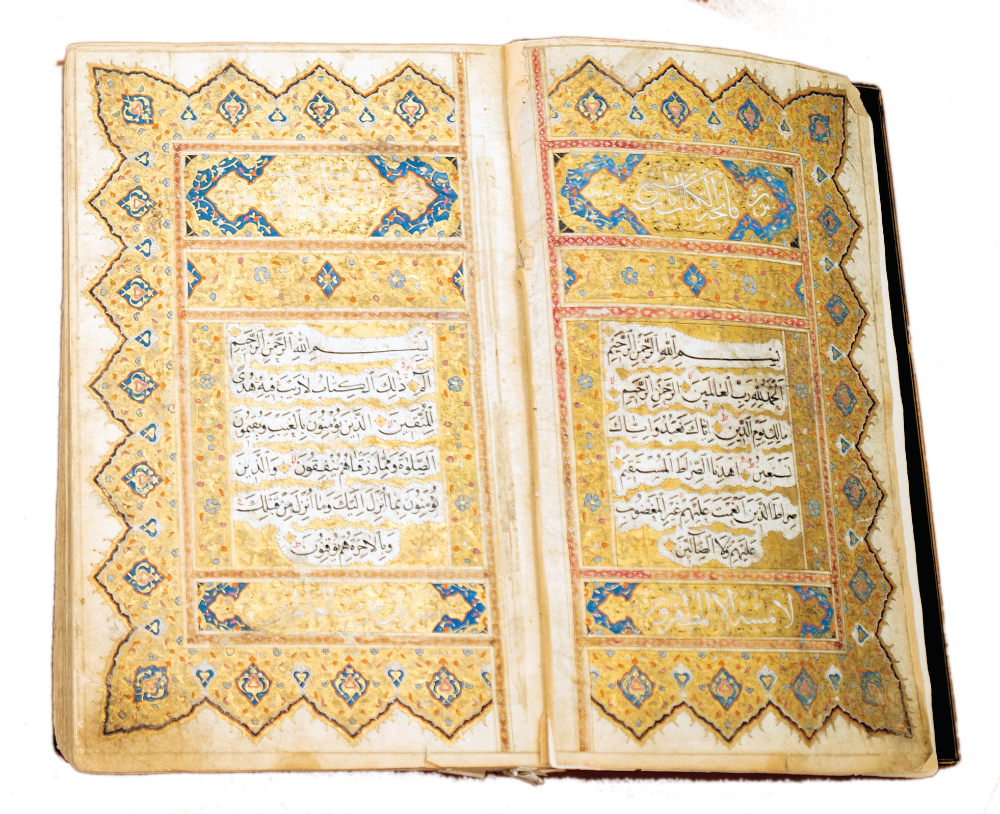 سورة فاتحة الكتاب
بسم الله الرحمن الرحيم
الحمد لله رب العالمين الرحمن الرحيم
مالك يوم الدين اياك نعبد واياك
نستعين اهدنا الصراط المستقيم
صراط الذين انعمت عليهم غير المغضوب
عليهم ولا الضالين
لا يمسه الا المطهرون
بسم الله الرحمن الرحيم
الم ذلك الكتاب لا ريب فيه هدى
للمتقين الذين يؤمنون بالغيب ويقيمون
الصلوة ومما رزقناهم ينفقون والذين
يؤمنون بما انزل اليك وما انزل من قبلك
وبالاخرة هم يوقنون